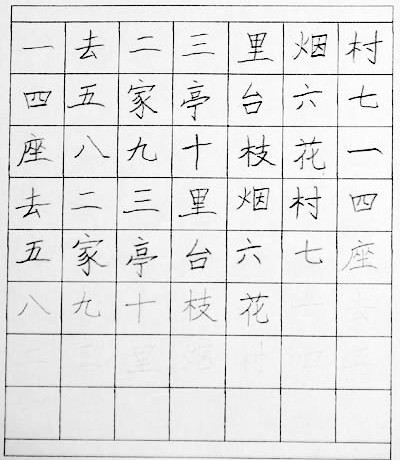 一去二三里烟村
四五家亭台六七
座八九十枝花一
去二三里烟村四
五家亭台六七座
八九十枝花一去
二三里烟村四五